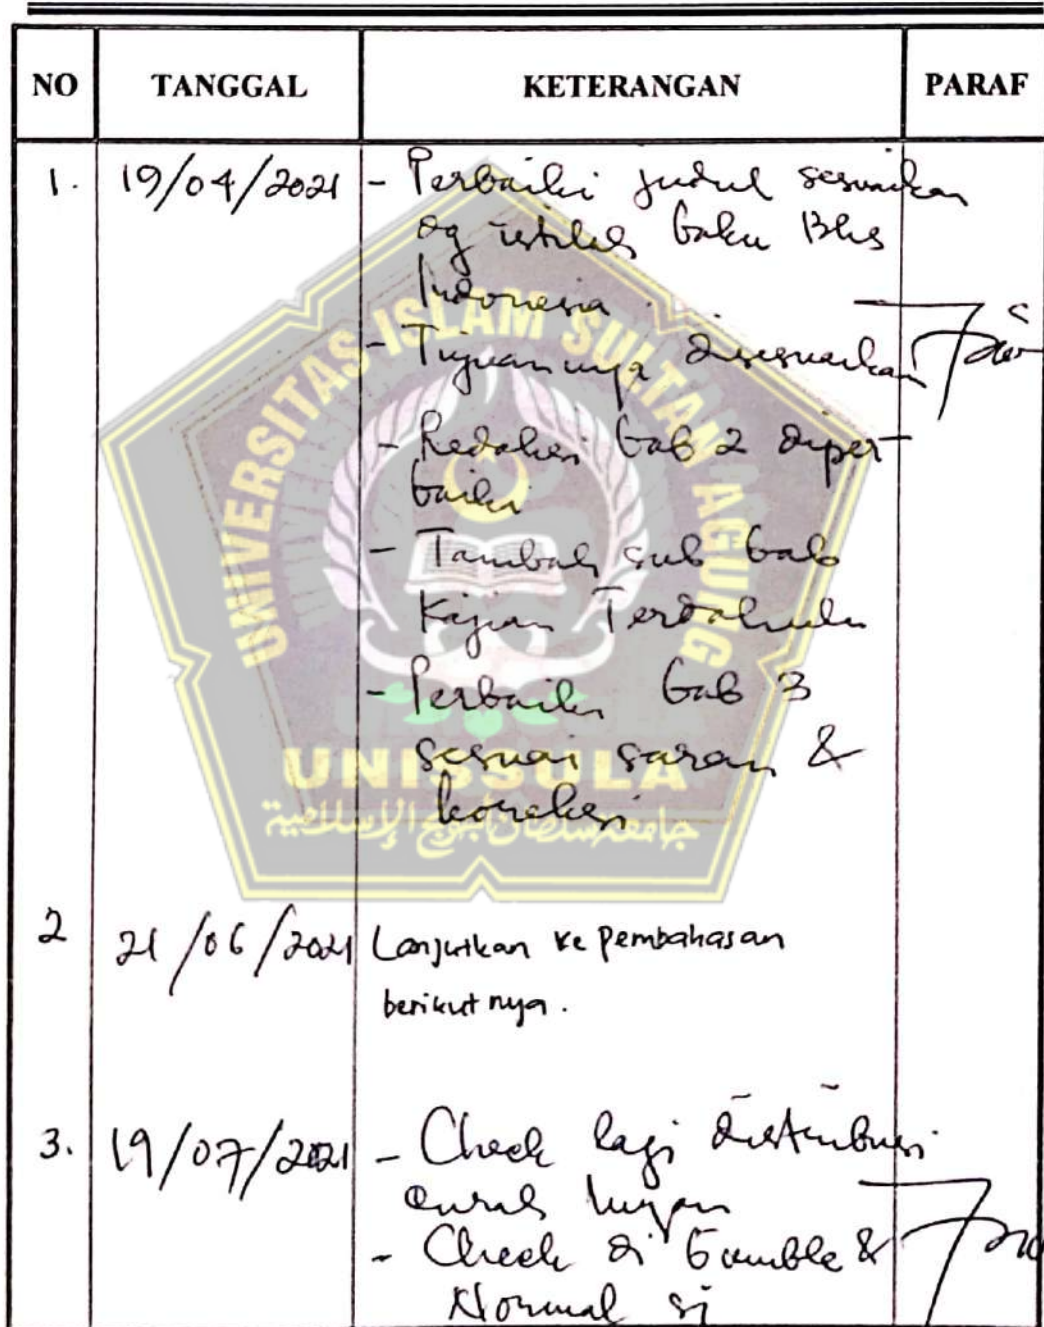 NO TANGGAL KETERANGAN PARAF
1. 19/04/2021 - Perbaiki judul sesuaikan
dg istilah baku Bhs
Indonesia.
- Tujuannya disesuaikan
- Redaksi bab 2 diper-
baiki
- Tambah sub bab
Kajian Terdahulu
- Perbaiki bab 3
sesuai saran &
koreksi
2 21/06/2021 Lanjutkan ke pembahasan
berikutnya.
3. 19/07/2021 - Check lagi distribusi
curah hujan
- Check di Gumble &
Normal
UNIVERSITAS ISLAM SULTAN AGUNG
UNISSULA
جامعة سلطان أجونج الإسلامية